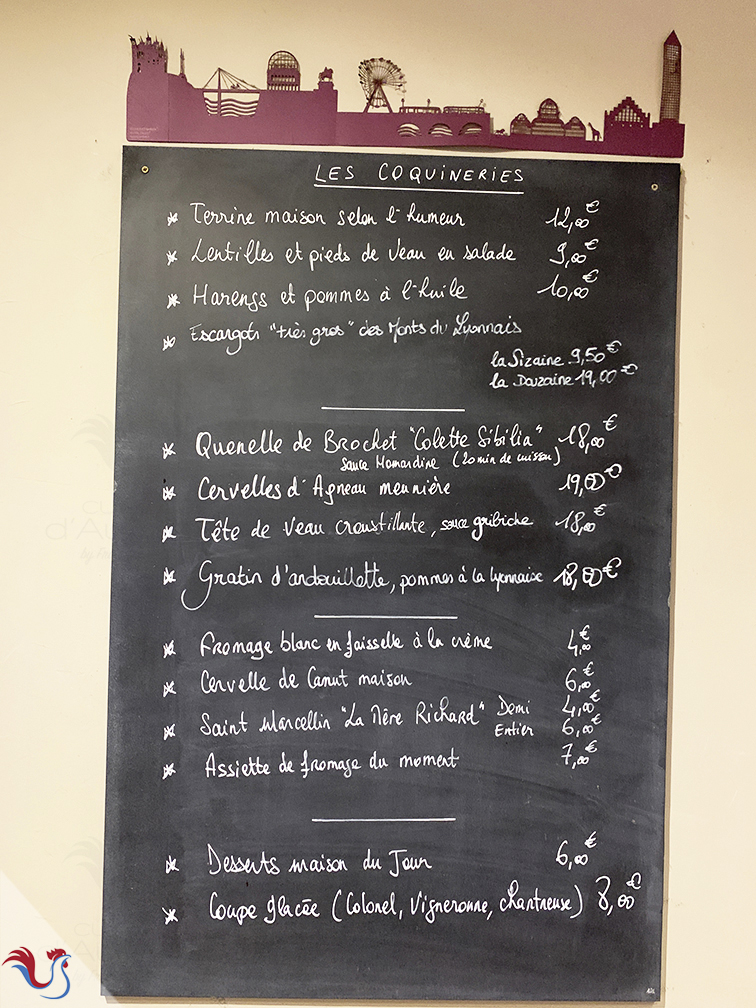 LES COQUINERIES
* Terrine maison selon l'humeur 12,00€
* Lentilles et pieds de Veau en salade 9,00€
* Harengs et pommes à l'huile 10,00€
* Escargots "très gros" des Monts du Lyonnais
la Sizaine 9,50€
la Douzaine 19,00€
* Quenelle de Brochet "Colette Sibilia" 18,00€
sauce Homardine (20 min de cuisson)
* Cervelles d'Agneau meunière 19,00€
* Tête de Veau croustillante, sauce gribiche 18,00€
* Gratin d'andouillette, pommes à la lyonnaise 18,00€
* Fromage blanc en faisselle à la crème 4,00€
* Cervelle de Canut maison 6,00€
* Saint Marcellin "La Mère Richard" Demi 4,00€
Entier 6,00€
* Assiette de fromage du moment 7,00€
* Desserts maison du Jour 6,00€
* Coupe glacée (Colonel, Vigneronne, chartreuse) 8,00€